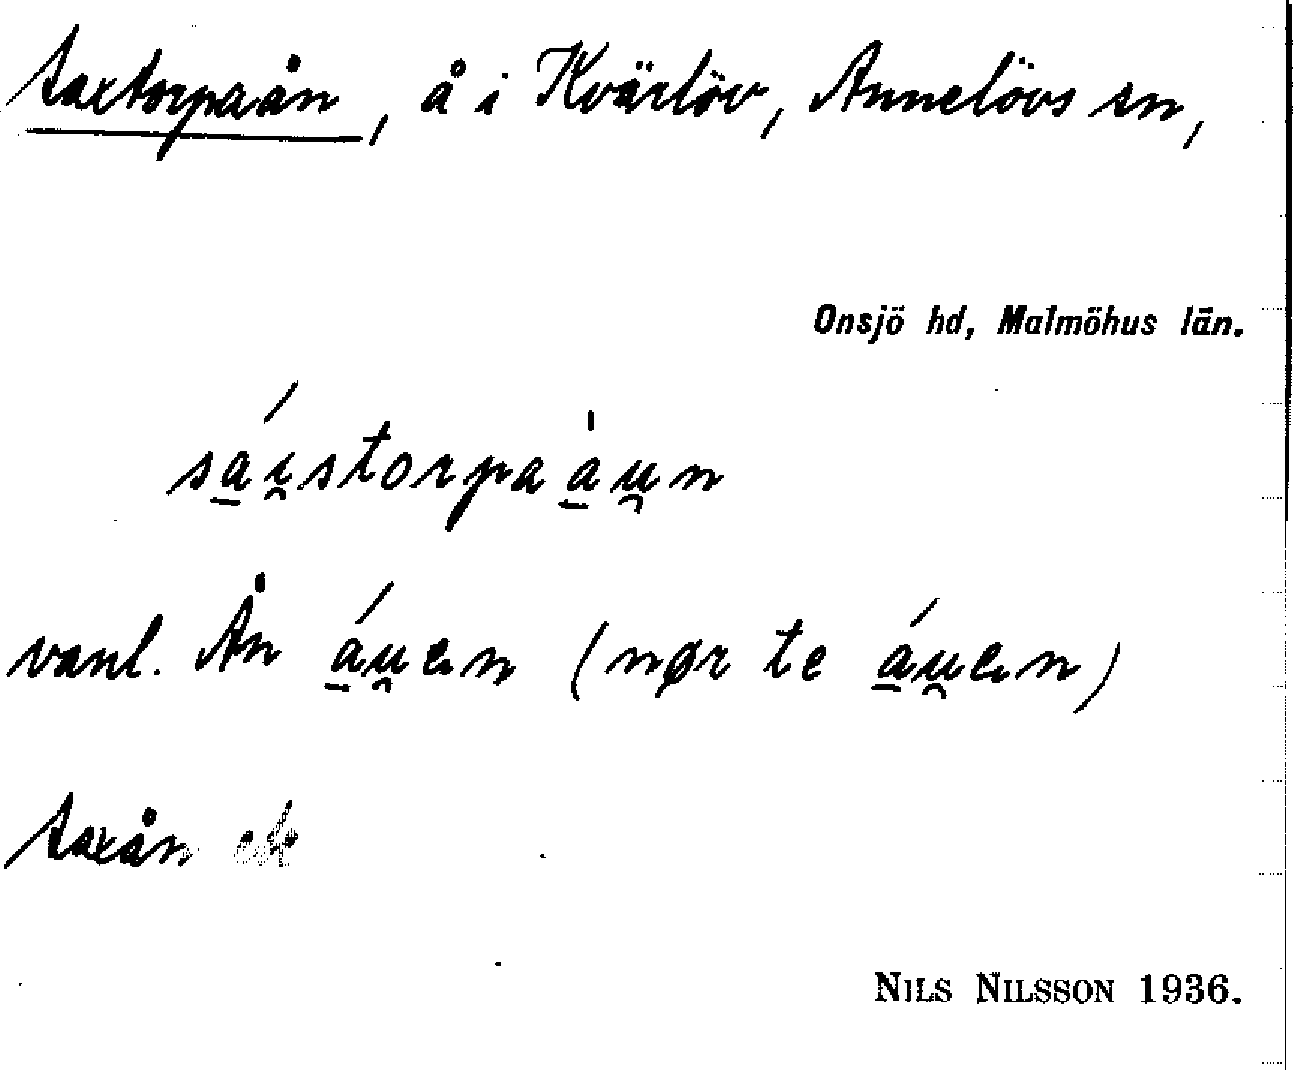 Saxtorpaån, å i Kvärlöv, Annelövs sn,
Onsjö hd, Malmöhus län.
sá̱i̯storpaa̱̍u̯n
vanl. Ån á̱u̯en (nør te á̱u̯en)
Saxån ek
NILS NILSSON 1936.